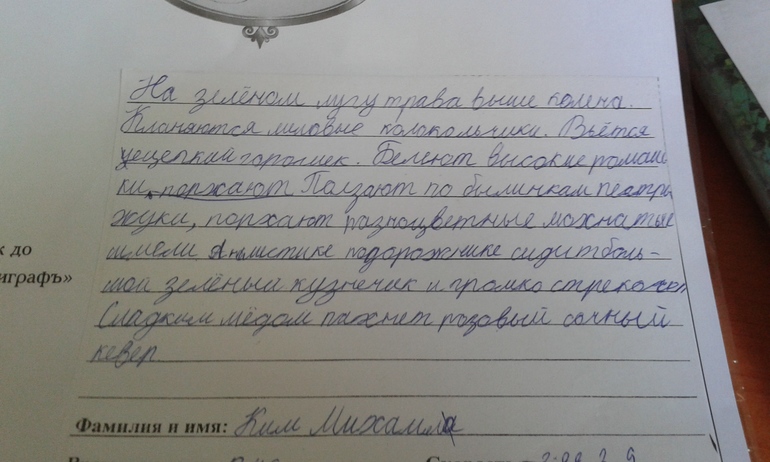 На зелёном лугу трава выше колена.
Кланяются лиловые колокольчики. Вьётся
цецепкий горошек. Белеют высокие ромаш
ки, поржают Ползают по былинкам пестры
жуки, порхают разноцветные мохнатые
шмели Аналистике подорожнике сидит боль-
шой зелёный кузнечик и громко стрекочет
Сладким мёдом пахнет розовый сочный
кевер
к до
играфъ»
Фамилия и имя: Ким Михаил